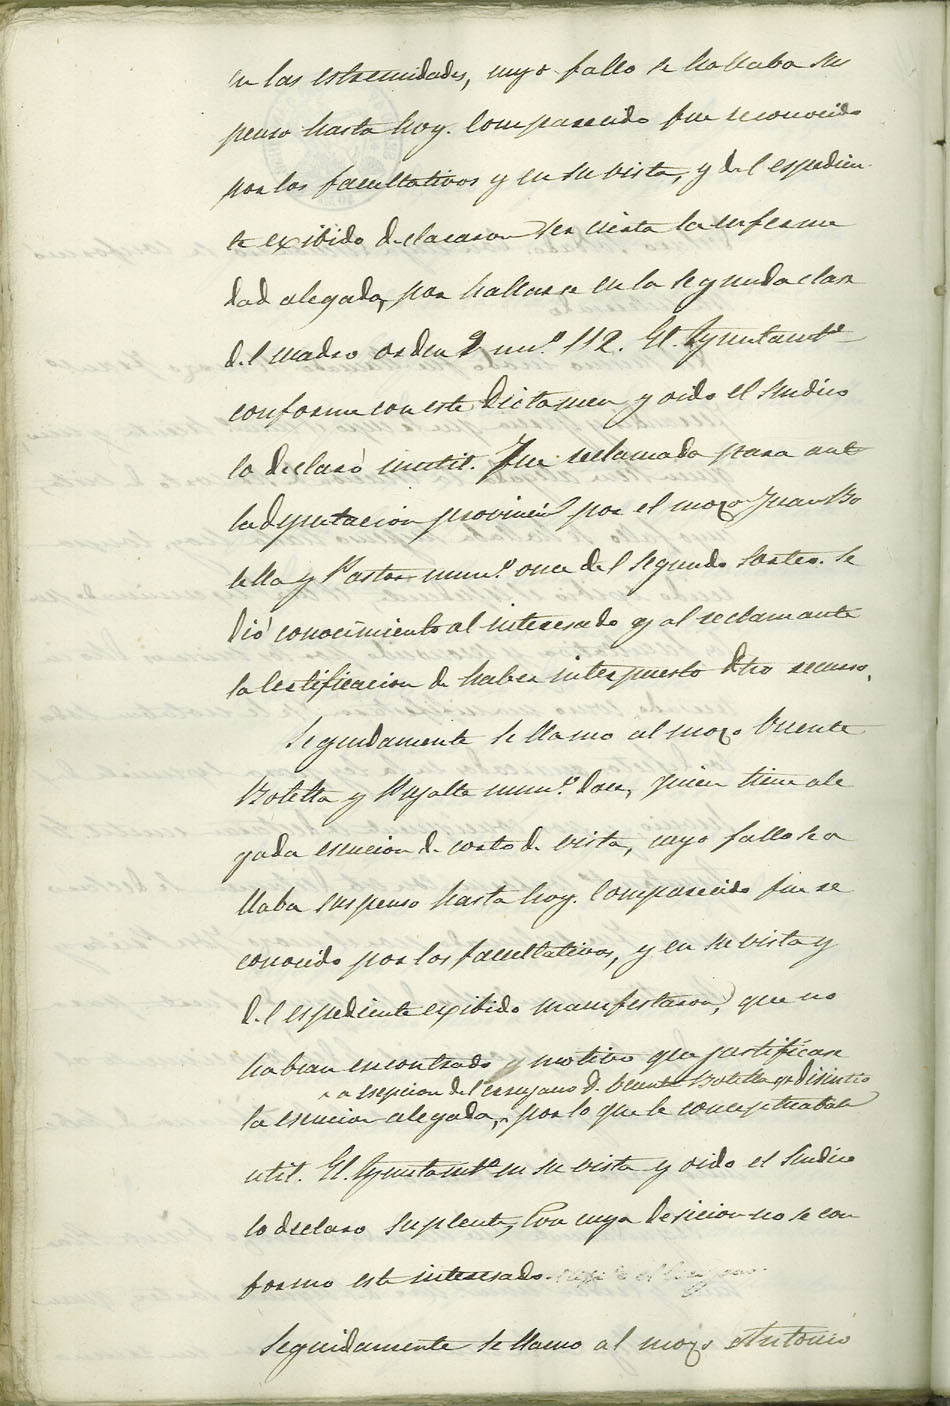 en las estremidades, cuyo fallo se hallaba sus
penso hasta hoy. Comparecido fue reconocido
por los facultativos y en su vista, y del espedien
te exibido declararon ser cierta la enferme
dad alegada, por hallarse en la segunda clase
del cuadro orden 9 nu.º 112. El Ayuntam.to
conforme con este dictamen y oido el Sindico
lo declaró inutil. Fue reclamado para ante
la Dyputacion provincial por el mozo Juan Bo
tella y Pastor num.º once del segundo sorteo. Se
dió conocimiento al interesado y al reclamante
la Certificacion de haber interpuesto dho recurso.
Seguidamente se llamo al mozo Vicente
Botella y num.º doce, quien tiene ale
gada esencion de corto de vista, cuyo fallo se a
llaba suspenso hasta hoy. Comparecido fue re
conocido por los facultativos, y en su vista y
del espediente exibido manifestaron, que no
habian encontrado motivo que justificase
a esepcion del cirujano D. Vicente Botella qe disintio
la esencion alegada, por lo que le conceptuaban
util. El Ayuntam.to en su vista y oido el Sindico
lo declaro suplente, Con cuya desicion no se con
formo este interesado.
Seguidamente se llamo al mozo Antonio